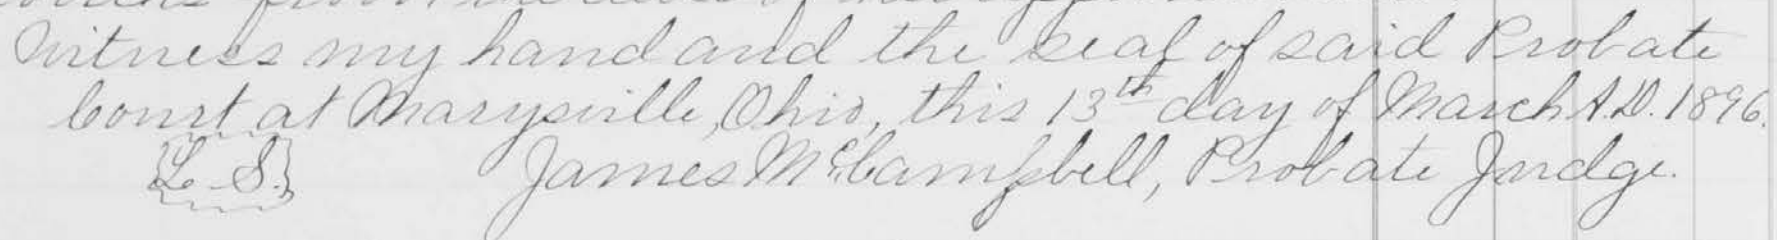 from the of
Witness my hand and the seal of said Probate
Court at Marysville, Ohio, this 13th day of March A.D. 1896.
L. S. James McCampbell, Probate Judge.